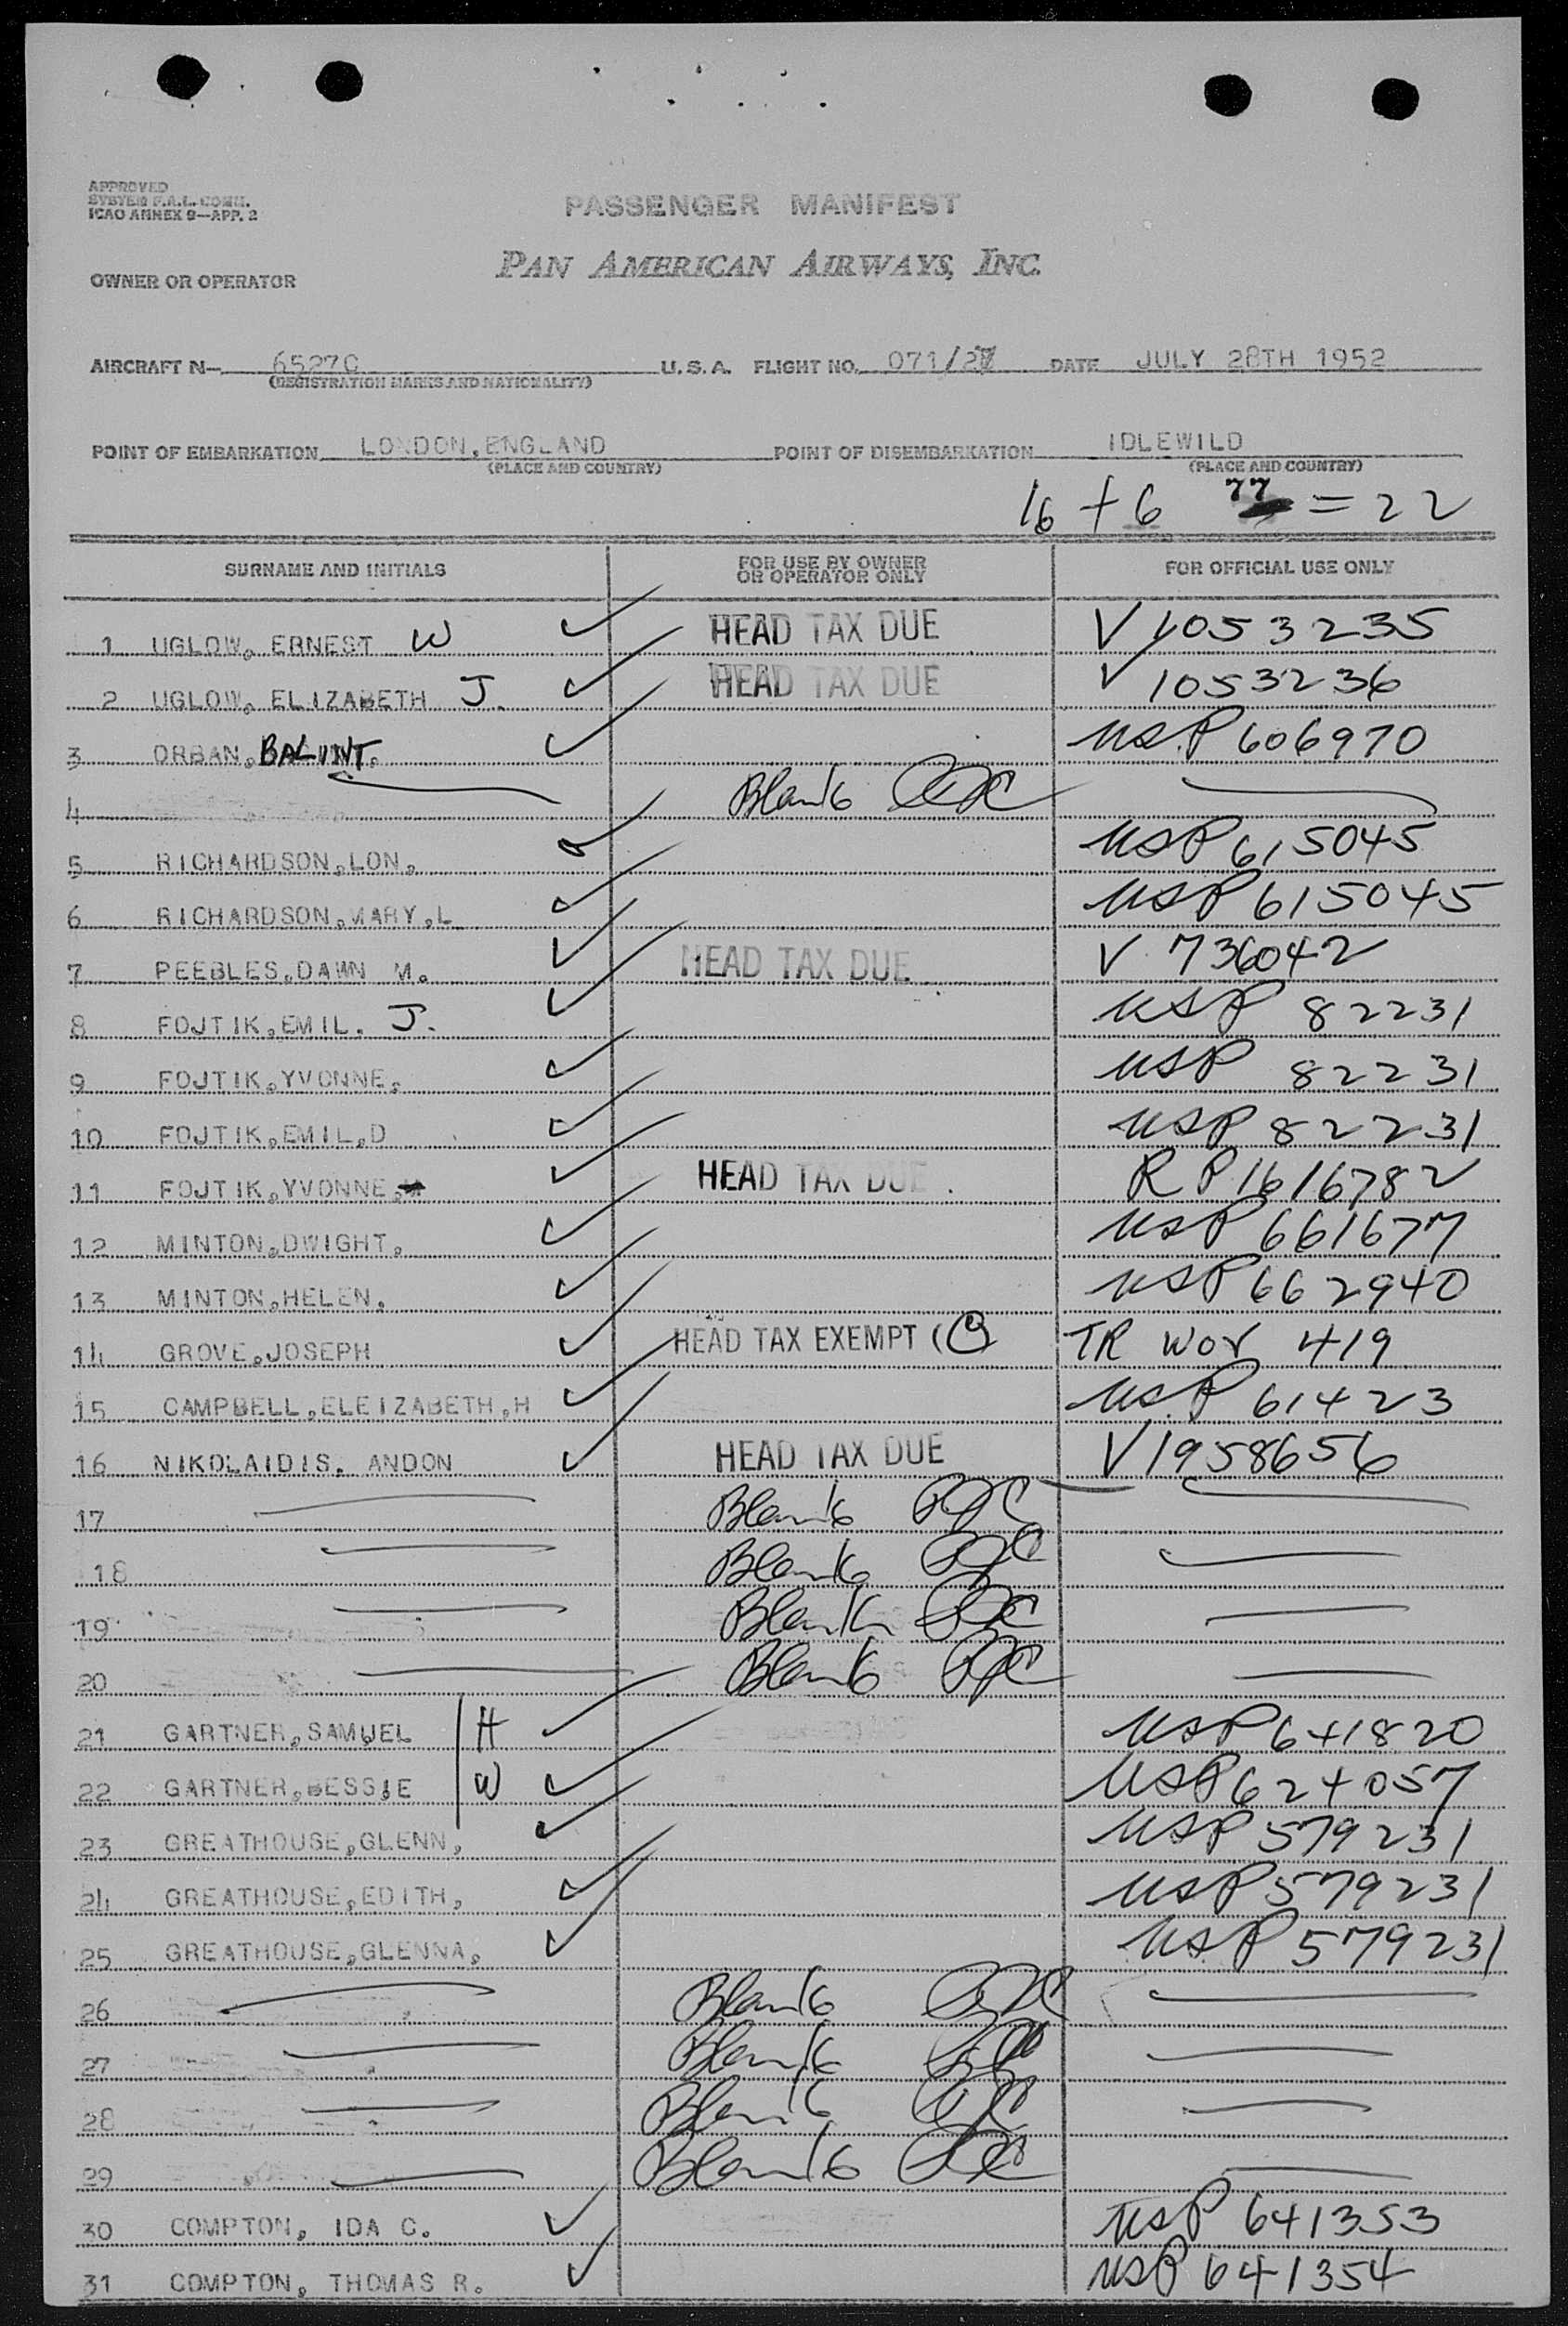 APPROVED
SYSTEM F.A.L. COMM.
ICAO ANNEX 9—APP. 2
PASSENGER MANIFEST
PAN AMERICAN AIRWAYS, INC.
OWNER OR OPERATOR
AIRCRAFT N— 6527C U.S.A. FLIGHT NO. 071/27 DATE JULY 28TH 1952
(REGISTRATION MARKS AND NATIONALITY)
POINT OF EMBARKATION LONDON, ENGLAND POINT OF DISEMBARKATION IDLEWILD
(PLACE AND COUNTRY) (PLACE AND COUNTRY)
16 + 6 77 = 22
SURNAME AND INITIALS FOR USE BY OWNER OR OPERATOR ONLY FOR OFFICIAL USE ONLY
1 UGLOW, ERNEST W HEAD TAX DUE V 1053235
2 UGLOW, ELIZABETH J. HEAD TAX DUE V 1053236
3 ORBAN, BALINT. USP 606970
4 Blank
5 RICHARDSON, LON, USP 615045
6 RICHARDSON, MARY, L USP 615045
7 PEEBLES, DAWN M. HEAD TAX DUE V 736042
8 FOJTIK, EMIL. J. USP 82231
9 FOJTIK, YVONNE, USP 82231
10 FOJTIK, EMIL, D USP 82231
11 FOJTIK, YVONNE, HEAD TAX DUE RP 1616782
12 MINTON, DWIGHT, USP 661677
13 MINTON, HELEN, USP 662940
14 GROVE, JOSEPH HEAD TAX EXEMPT TR WOV 419
15 CAMPBELL, ELEIZABETH, H USP 61423
16 NIKOLAIDIS, ANDON HEAD TAX DUE V 1958656
17 Blank
18 Blank
19 Blank
20 Blank
21 GARTNER, SAMUEL H USP 641820
22 GARTNER, BESSIE W USP 624057
23 GREATHOUSE, GLENN, USP 579231
24 GREATHOUSE, EDITH, USP 579231
25 GREATHOUSE, GLENNA, USP 579231
26 Blank
27 Blank
28 Blank
29 Blank
30 COMPTON, IDA C. USP 641353
31 COMPTON, THOMAS R. USP 641354